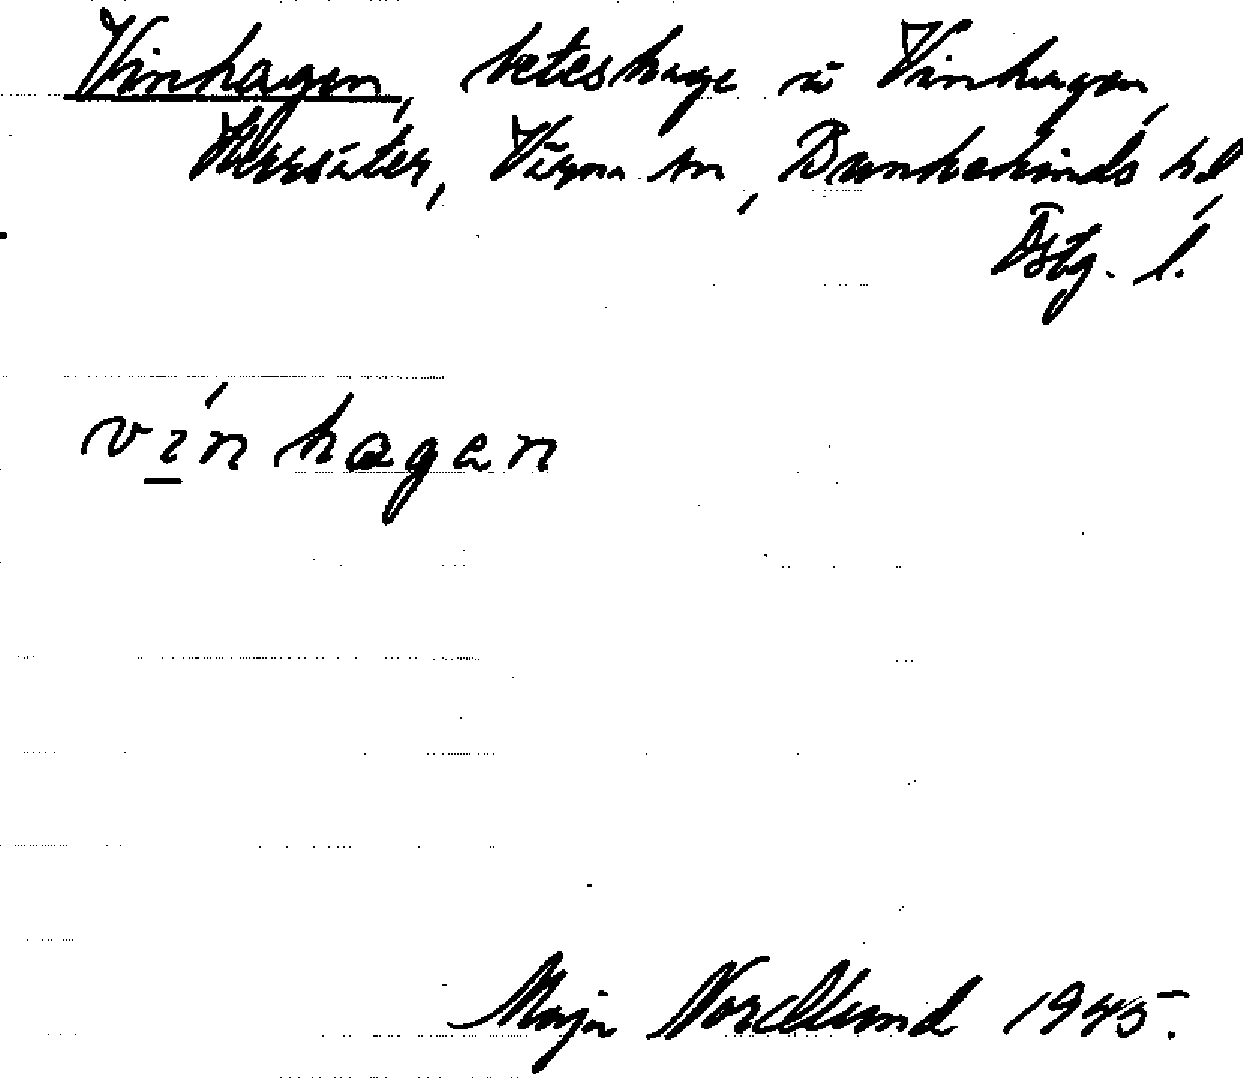 Vinhagen, beteshage å Vinhagen,
Herrsäter, Värna sn, Bankekinds hd,
Östg. l.
vinhagen
Maja Nordlund 1945.